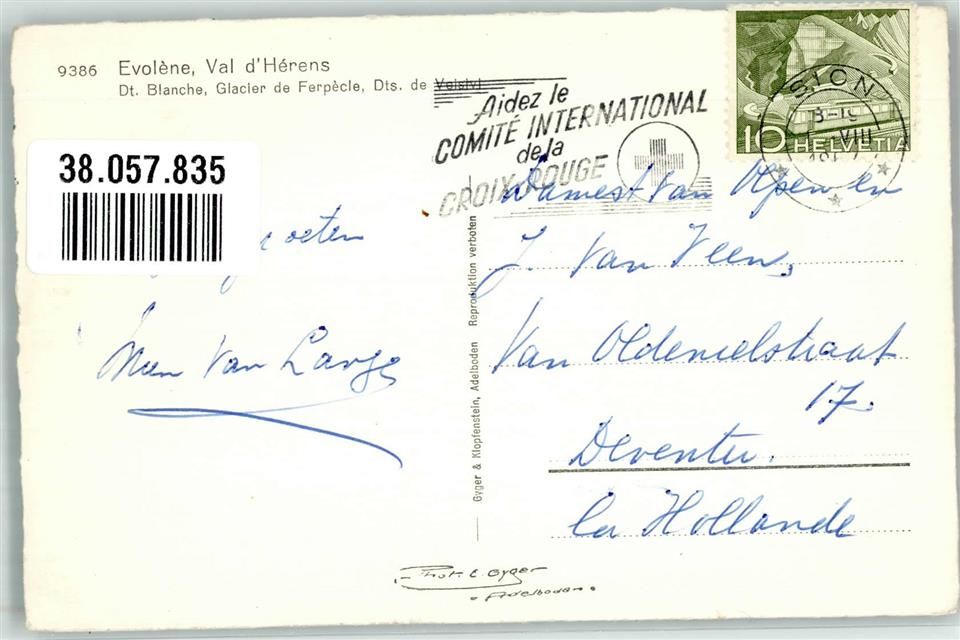 9386 Evolène, Val d'Hérens
Dt. Blanche, Glacier de Ferpècle, Dts. de Veisivi
Aidez le
COMITÉ INTERNATIONAL
de la
CROIX-ROUGE
SION
VIII
10 HELVETIA
38.057.835
groeten
Van Lange
Dames Van Olpen en
J. Van Veen,
Van Oldenielstraat
17.
Deventer.
La Hollande
Gyger & Klopfenstein, Adelboden Reproduktion verboten
Phot. E. Gyger
Adelboden